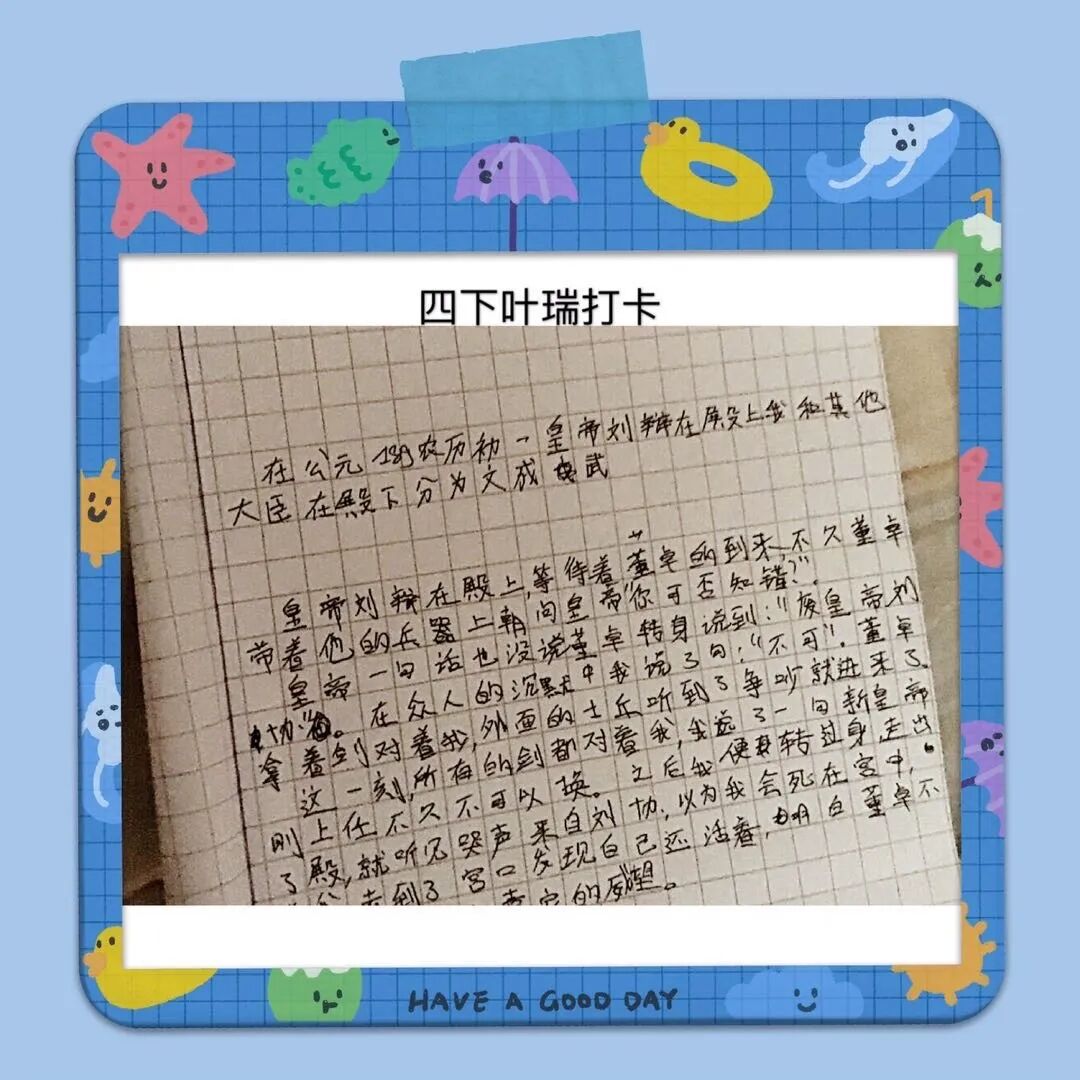 四下叶瑞打卡
在公元189农历初一皇帝刘辩在殿上我和其他
大臣在殿下分为文成武
皇帝刘辩在殿上,等待着董卓的到来,不久董卓
带着他的兵器上朝问皇帝“你可否知错?”.
皇帝一句话也没说董卓转身说到:“废皇帝刘
协”。在众人的沉默中我说了句:“不可”.董卓
拿着剑对着我,外面的士兵听到了争吵就进来了
这一刻,所有的剑都对着我,我说了一句新皇帝
刚上任不久不可以换。之后我便转过身,走出
了殿,就听见哭声来自刘协,以为我会死在宫中,
走到了宫口发现自己还活着,明白董卓不
的威望。
HAVE A GOOD DAY